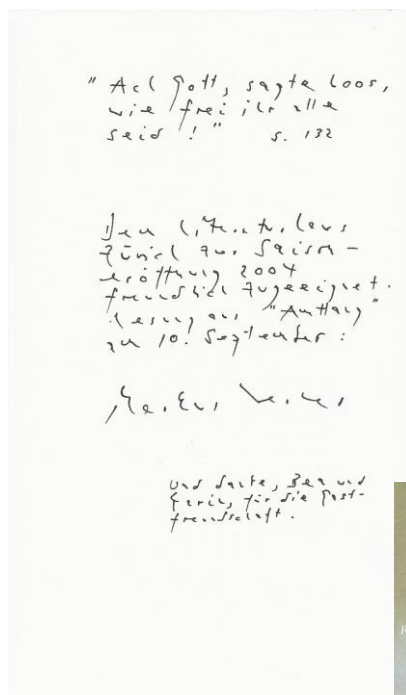 "Ach Gott, sagte Loos,
wie frei ihr alle
seid!" S. 132
Dem Literaturhaus
Zürich zur Saison-
eröffnung 2004
freundlich zugeeignet.
Lesung aus "Am Hang"
am 10. September:
Markus Werner
Und danke, Bea und
für die Gast-
freundschaft.